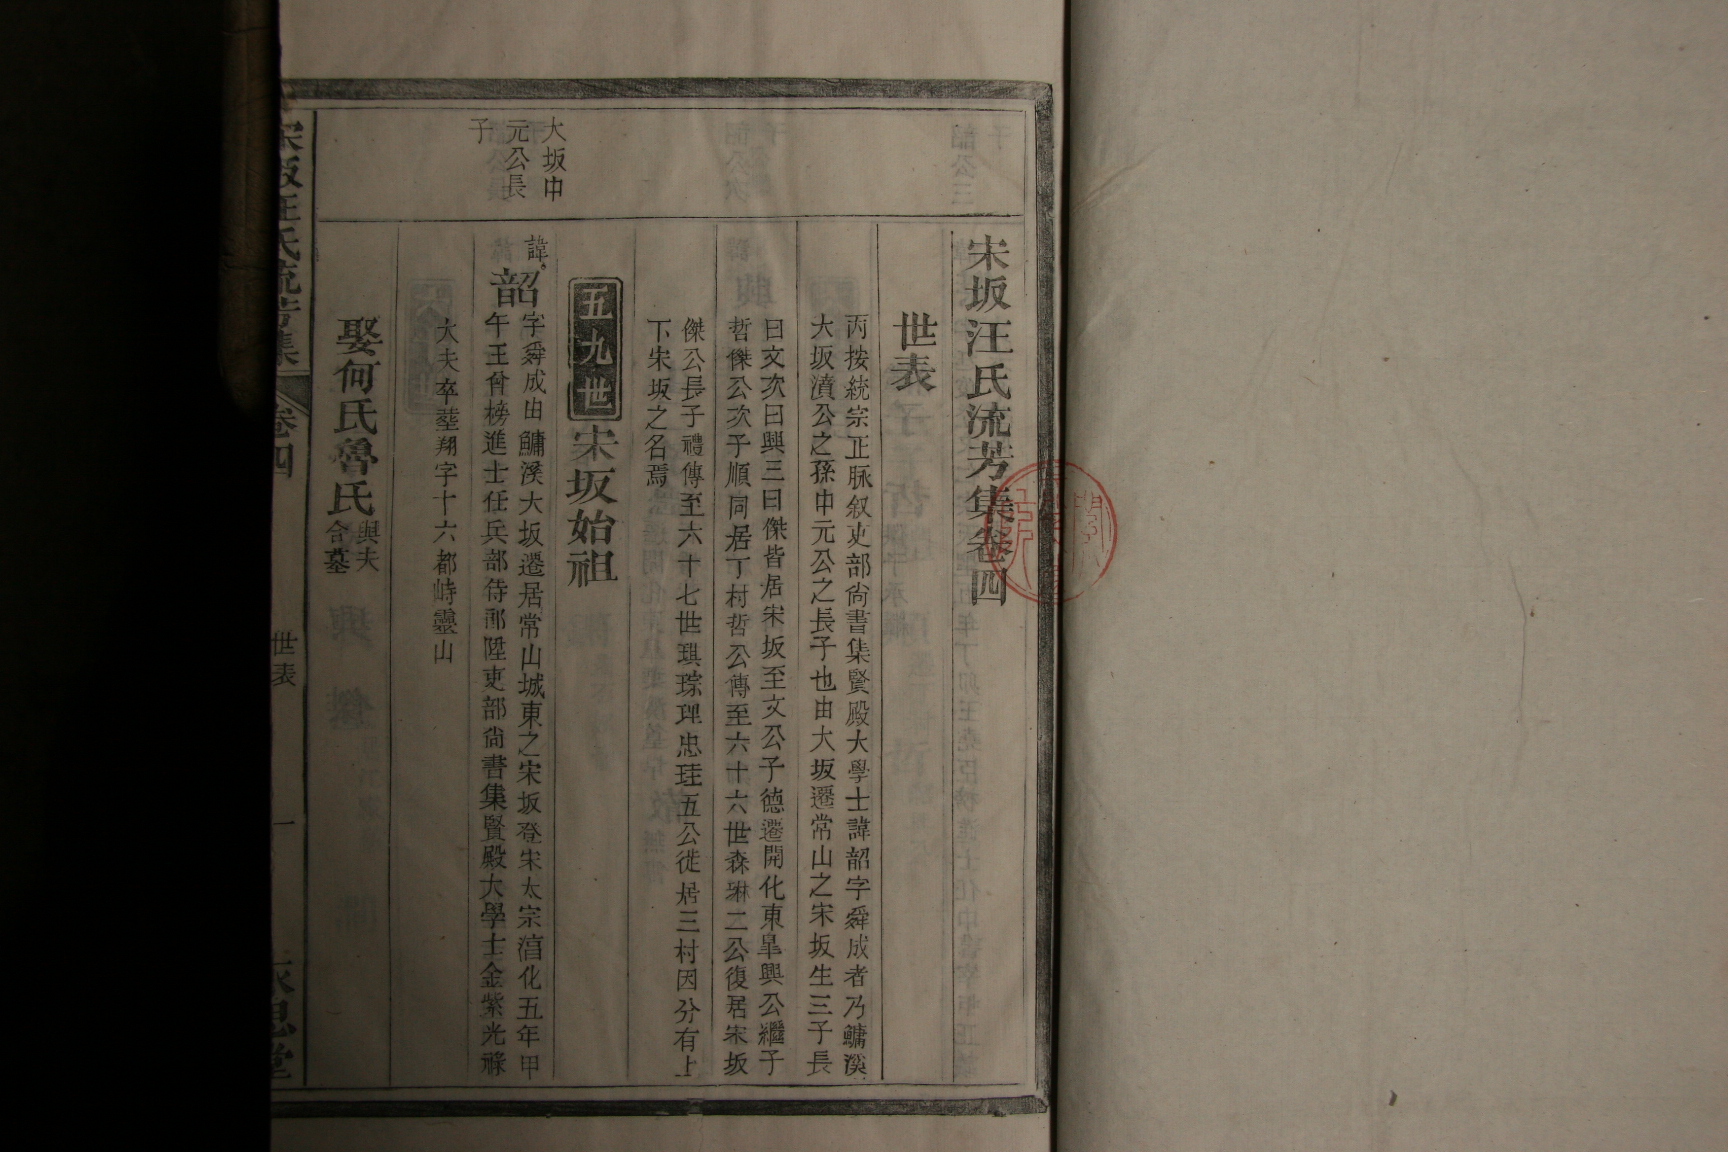 宋坂汪氏流芳集卷四
世表
丙按統宗正脉叙吏部尚書集賢殿大學士諱韶字舜成者乃鱅溪
大坂濆公之孫中元公之長子也由大坂遷常山之宋坂生三子長
曰文次曰興三曰傑皆居宋坂至文公子德遷開化東臯興公繼子
哲傑公次子順同居丁村哲公傳至六十六世森琳二公復居宋坂
傑公長子禮傳至六十七世琪琮理忠珪五公徙居三村因分有上
下宋坂之名焉
五九世 宋坂始祖
大坂中
元公長
子
諱韶字舜成由鱅溪大坂遷居常山城東之宋坂登宋太宗淳化五年甲
午王曾榜進士任兵部侍郎陞吏部尚書集賢殿大學士金紫光祿
大夫卒塟翔字十六都峙靈山
娶何氏魯氏與夫
合墓
宋坂汪氏流芳集 卷四 世表 一 思堂